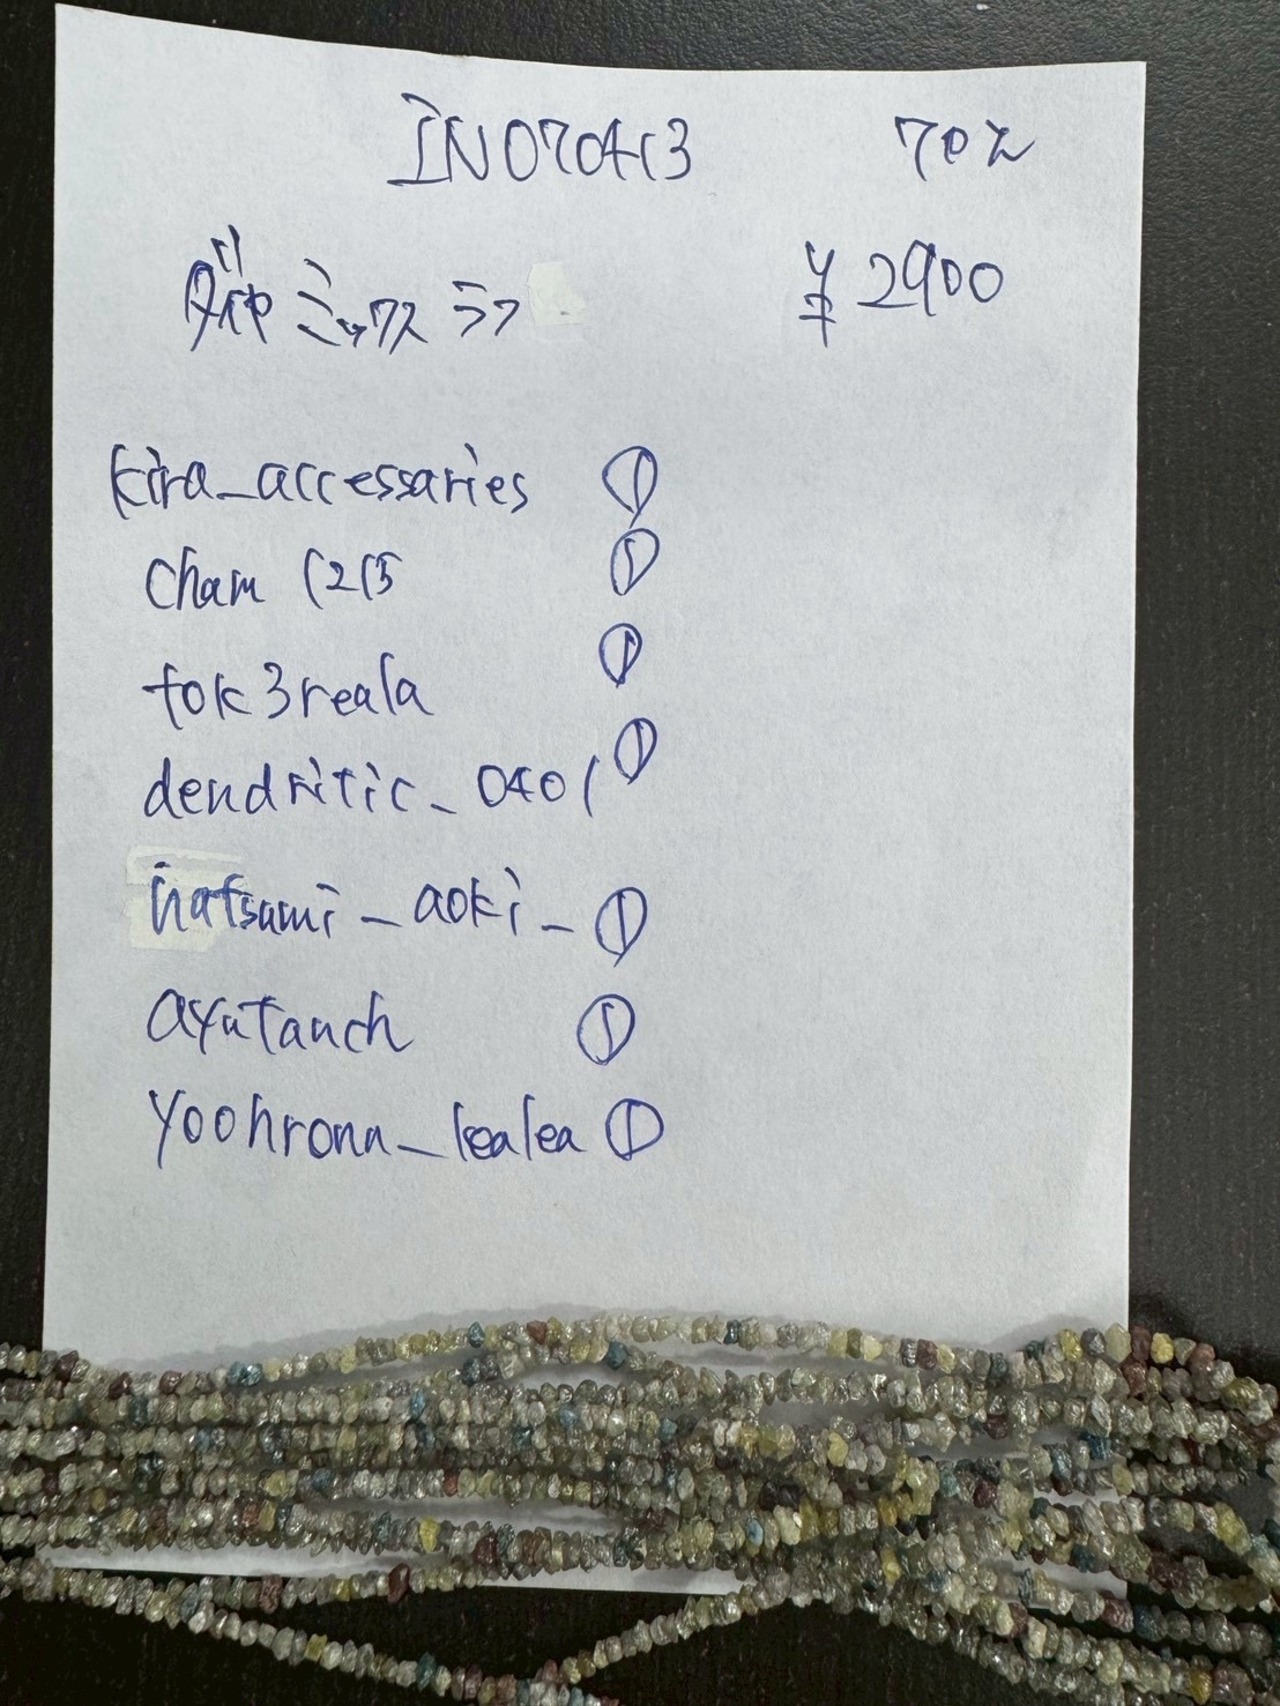 IN070413 70%
ダイヤミックスラフ ¥2900
kira_accessaries ①
cham 1215 ①
tok3reala ①
dendritic_0401 ①
natsumi_aoki_ ①
ayutanch ①
yoohronn_lealea ①